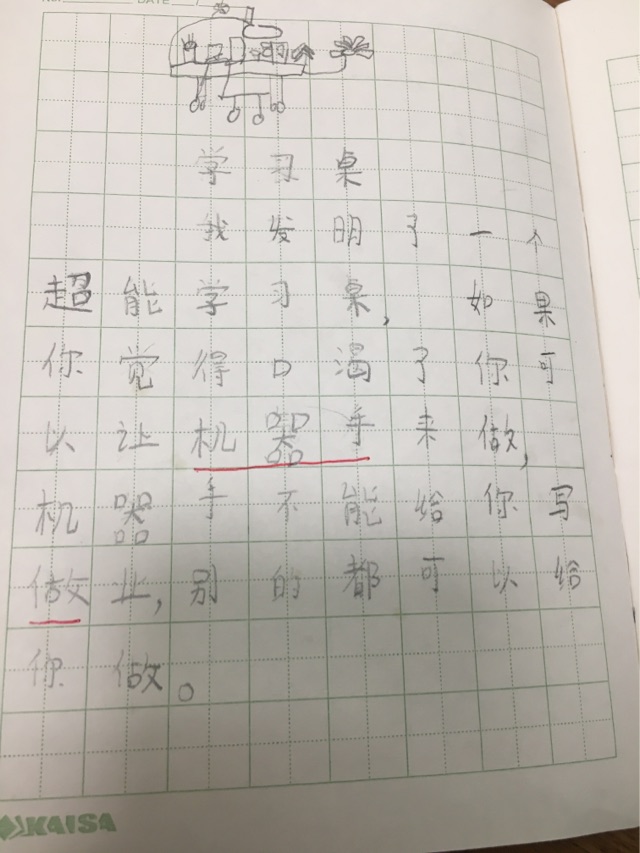 NO. DATE /
学习桌
我发明了一个
超能学习桌,如果
你觉得口渴了你可
以让机器手来做,
机器手不能给你写
做业,别的都可以给
你做。
KAISA